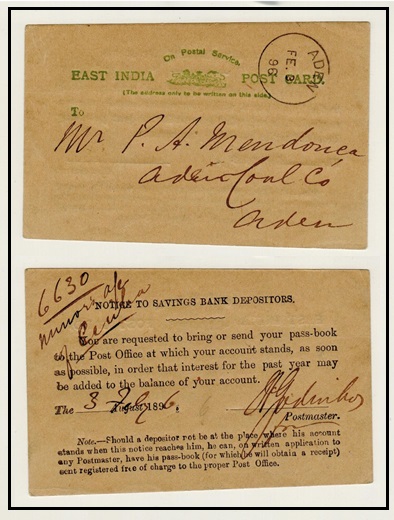 On Postal Service.
EAST INDIA POST CARD.
(The address only to be written on this side)
ADEN
FE. 3
96
To
Mr P. A. Mendonca
Aden Coal Co
Aden
6630
Minors a/c
NOTICE TO SAVINGS BANK DEPOSITORS.
You are requested to bring or send your pass-book
to the Post Office at which your account stands, as soon
as possible, in order that interest for the past year may
be added to the balance of your account.
The 3 Feb August 1896.
Postmaster.
Note.—Should a depositor not be at the place where his account
stands when this notice reaches him, he can, on written application to
any Postmaster, have his pass-book (for which he will obtain a receipt)
sent registered free of charge to the proper Post Office.